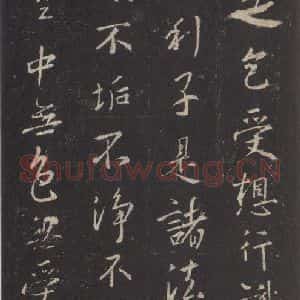 是色受想行識
利子是諸法
不垢不淨不
空中無色無受
Shufawang.CN